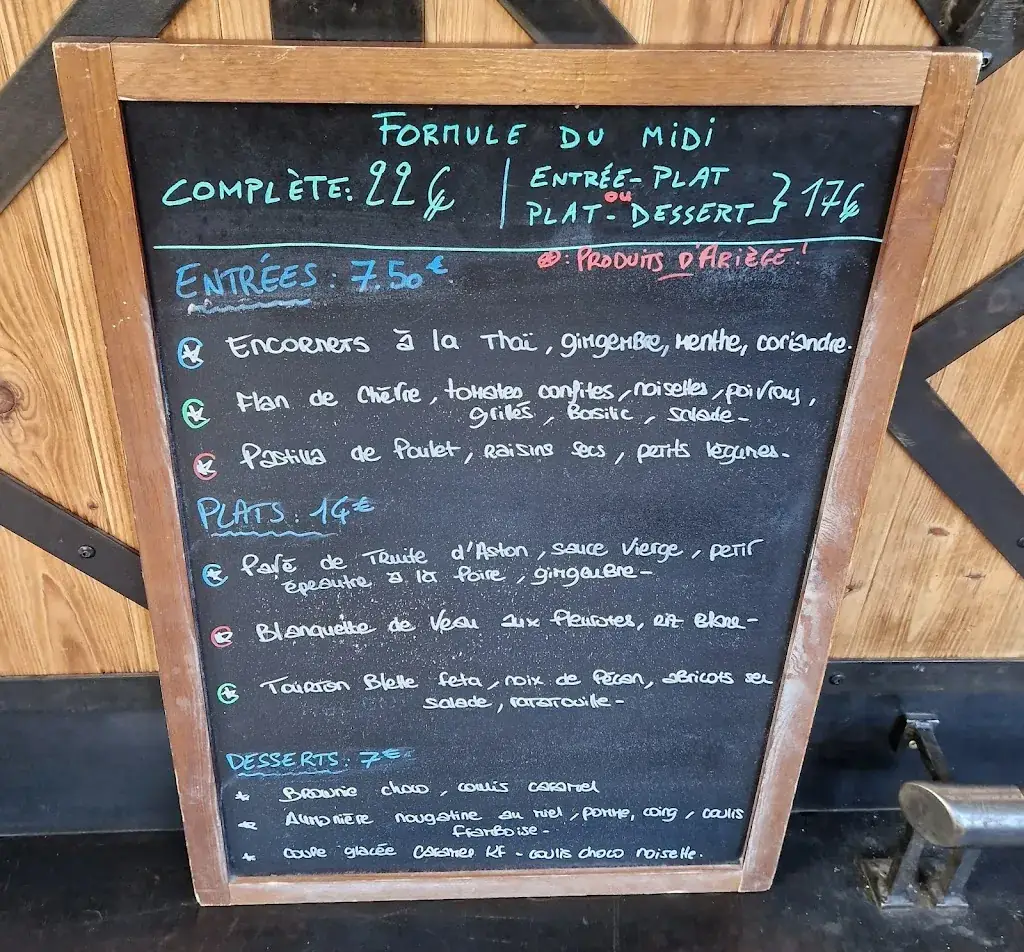 FORMULE DU MIDI
COMPLÈTE: 22€
ENTRÉE-PLAT
ou
PLAT-DESSERT } 17€
ENTRÉES: 7.50€
: PRODUITS D'ARIÈGE!
ENCORNETS à la Thaï, gingembre, menthe, coriandre.
Flan de Chèvre, tomates confites, noisettes, poivrons,
grillés, Basilic, salade-
Pastilla de Poulet, raisins secs, petits légumes-
PLATS: 14€
Pavé de Truite d'Aston, sauce vierge, petit
épeautre à la poire, gingembre-
Blanquette de Veau aux pleurotes, riz blanc-
feta, noix de Pécan, abricots sec
salade, ratatouille-
DESSERTS: 7€
Brownie choco, coulis caramel
Aumonière nougatine au miel, pomme, coing, coulis
framboise-
coupe glacée caramel - coulis choco noisette.